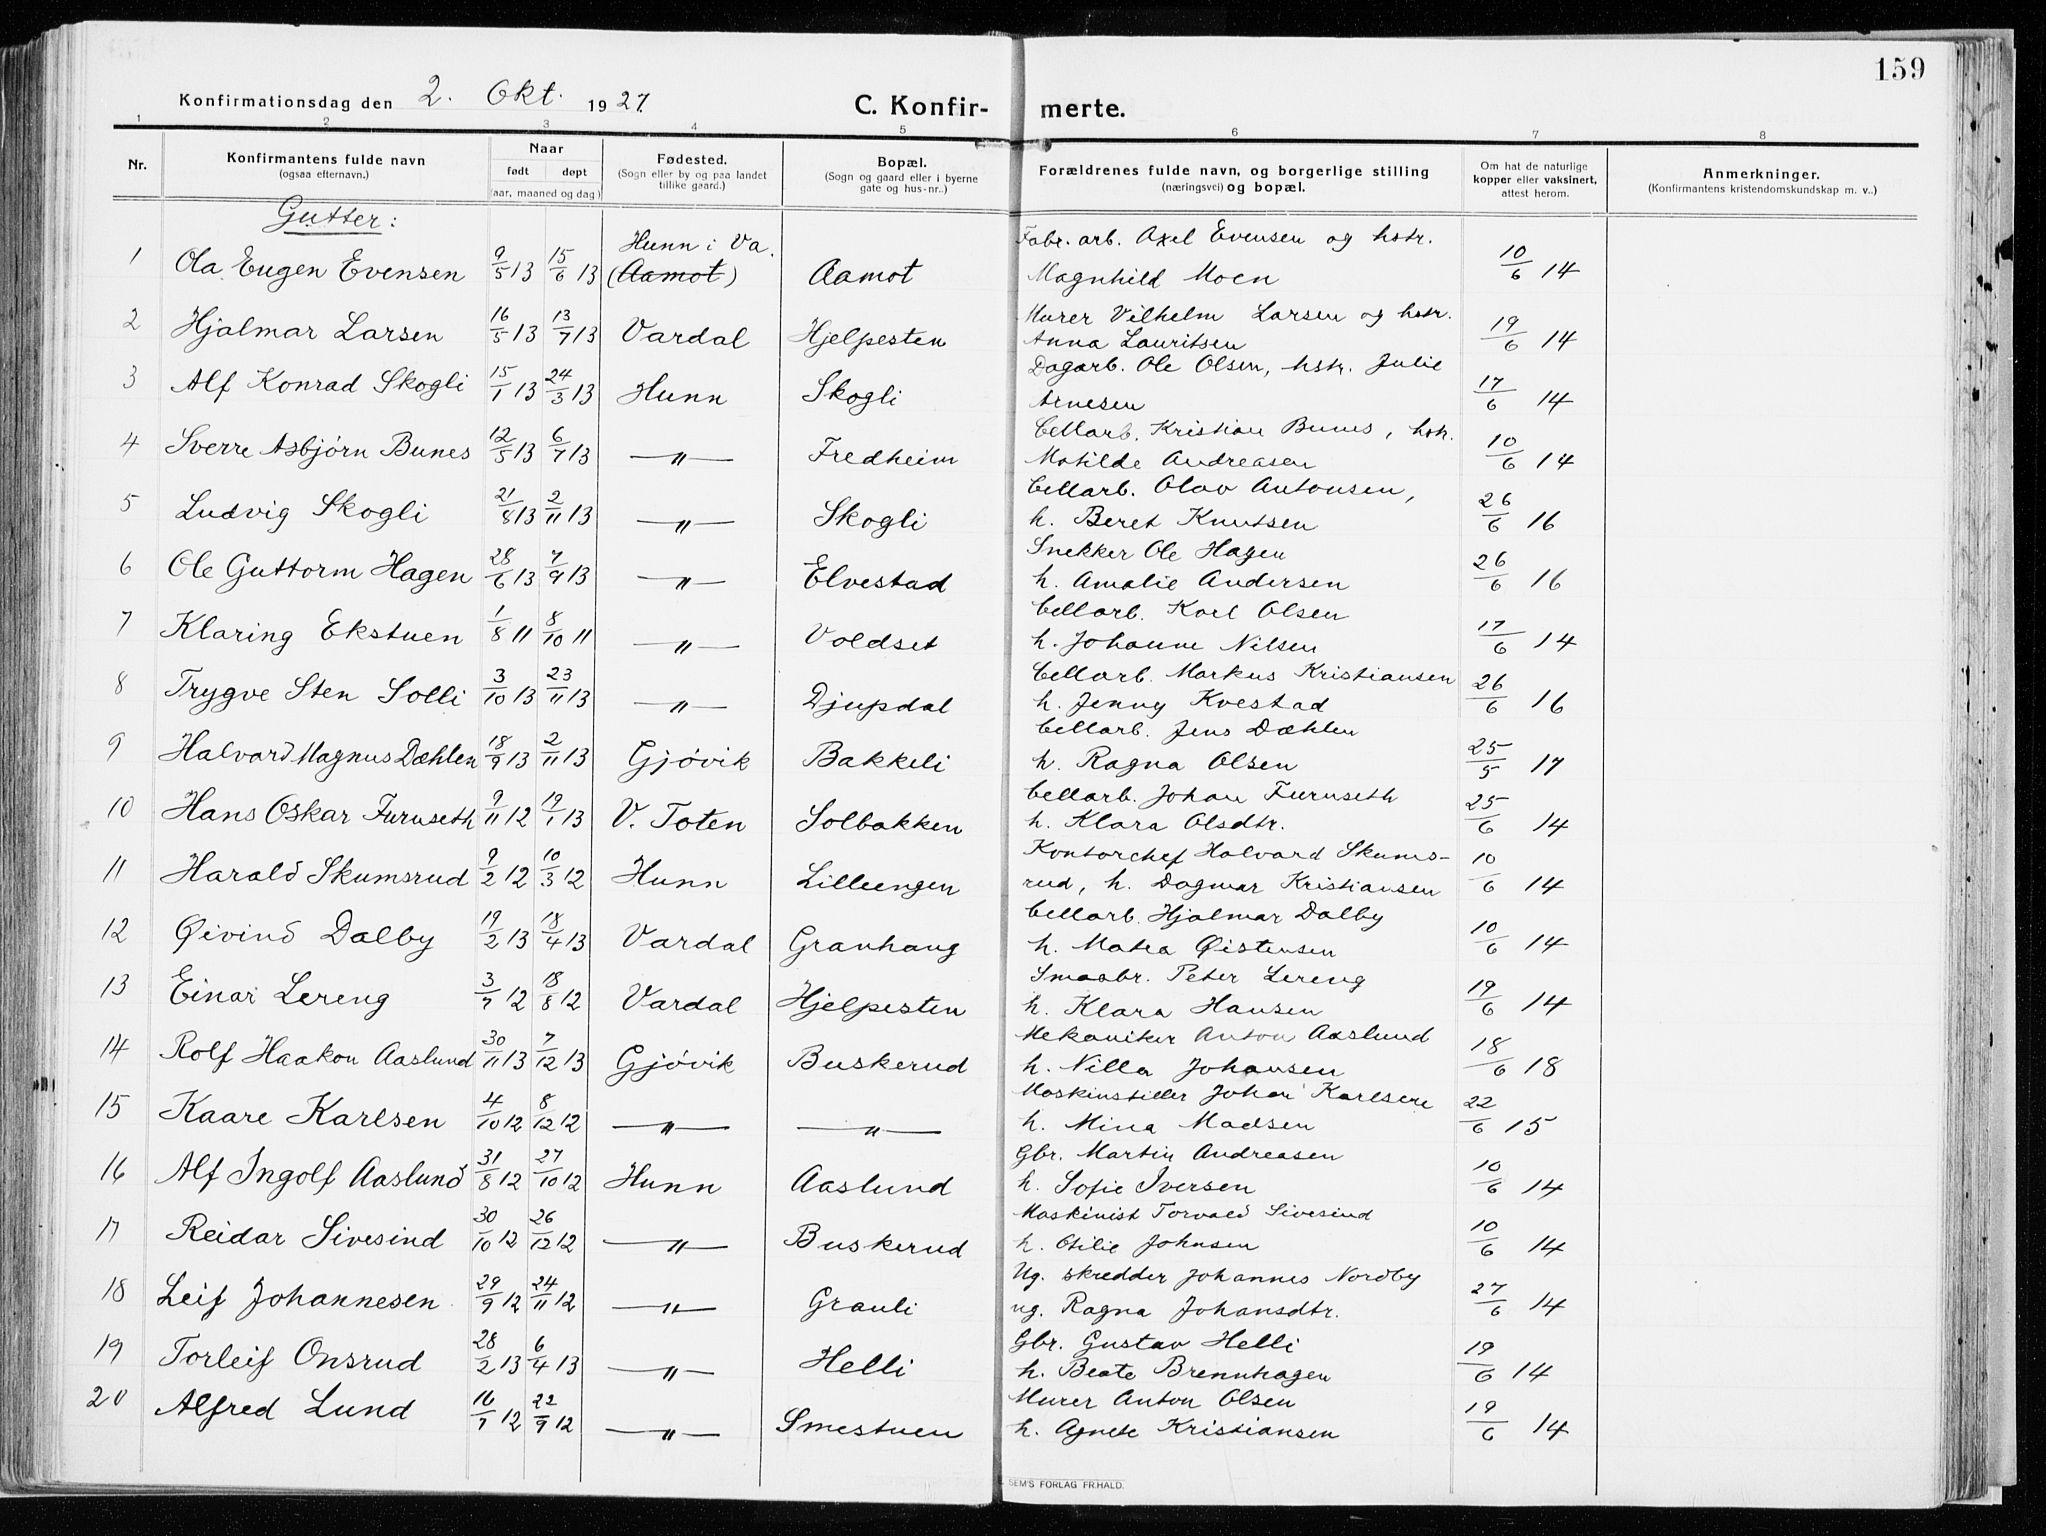 159
Konfirmationsdag den 2. Okt. 1927. C. Konfir- merte.
1 2 3 4 5 6 7 8
Nr. Konfirmantens fulde navn (ogsaa efternavn.) Naar født døpt (aar, maaned og dag.) Fødested. (Sogn eller by og paa landet tillike gaard.) Bopæl. (Sogn og gaard eller i byerne gate og hus-nr..) Forældrenes fulde navn, og borgerlige stilling (næringsvei) og bopæl. Om hat de naturlige kopper eller vaksinert, attest herom. Anmerkninger. (Konfirmantens kristendomskundskap m. v..)
Gutter:
1 Ola Eugen Evensen 9/5 13 15/6 13 Hunn i Va. (Aamot) Aamot Fabr. arb. Axel Evensen og hstr. 10/6 14
Magnhild Moen
2 Hjalmar Larsen 16/5 13 13/7 13 Vardal Hjelpesten Murer Vilhelm Larsen og hstr. 19/6 14
Anna Lauritsen
3 Alf Konrad Skogli 15/1 13 24/3 13 Hunn Skogli Dagarb. Ole Olsen, hstr. Julie 17/6 14
Arnesen
4 Sverre Asbjørn Bunes 12/5 13 6/7 13 —"— Fredheim Cellarb. Kristian Bunes, hstr. 10/6 14
Matilde Andreasen
5 Ludvig Skogli 21/8 13 2/11 13 —"— Skogli Cellarb. Olav Antonsen, 26/6 16
h. Beret Knutsen
6 Ole Guttorm Hagen 28/6 13 7/9 13 —"— Elvestad Snekker Ole Hagen 26/6 16
h. Amalie Andersen
7 Klaring Ekstuen 1/8 11 8/10 11 —"— Voldset Cellarb. Karl Olsen 17/6 14
h. Johanne Nilsen
8 Trygve Sten Solli 3/10 13 23/11 13 —"— Djupdal Cellarb. Markus Kristiansen 26/6 16
h. Jenny Kvestad
9 Halvard Magnus Dæhlen 18/9 13 2/11 13 Gjøvik Bakkeli Cellarb. Jens Dæhlen 25/5 17
h. Ragna Olsen
10 Hans Oskar Furuseth 9/11 12 19/1 13 V. Toten Solbakken Cellarb. Johan Furuseth 25/6 14
h. Klara Olsdtr.
11 Harald Skumsrud 9/2 12 10/3 12 Hunn Lilleengen Kontorchef Halvard Skums- 10/6 14
rud, h. Dagmar Kristiansen
12 Øivind Dalby 19/2 13 18/4 13 Vardal Granhaug Cellarb. Hjalmar Dalby 10/6 14
h. Matea Øistensen
13 Einar Lereng 3/7 12 18/8 12 Vardal Hjelpesten Smaabr. Peter Lereng 19/6 14
h. Klara Hansen
14 Rolf Haakon Aaslund 30/11 13 7/12 13 Gjøvik Buskerud Mekaniker Anton Aaslund 18/6 18
h. Nilla Johansen
15 Kaare Karlsen 4/10 12 8/12 12 —"— —"— Maskinstiller Johan Karlsen 22/6 15
h. Mina Madsen
16 Alf Ingolf Aaslund 31/8 12 27/10 12 Hunn Aaslund Gbr. Martin Andreasen 10/6 14
h. Sofie Iversen
17 Reidar Sivesind 30/10 12 26/12 12 —"— Buskerud Maskinist Torvald Sivesind 10/6 14
h. Otilie Johnsen
18 Leif Johannesen 29/9 12 24/11 12 —"— Granli Ug. skredder Johannes Nordby 27/6 14
ug. Ragna Johansdtr.
19 Torleif Onsrud 28/2 13 6/4 13 —"— Helli Gbr. Gustav Helli 19/6 14
h. Beate Brennhagen
20 Alfred Lund 16/7 12 22/9 12 —"— Smestuen Murer Anton Olsen 19/6 14
h. Agnete Kristiansen
SEM'S FORLAG FR.HALD.